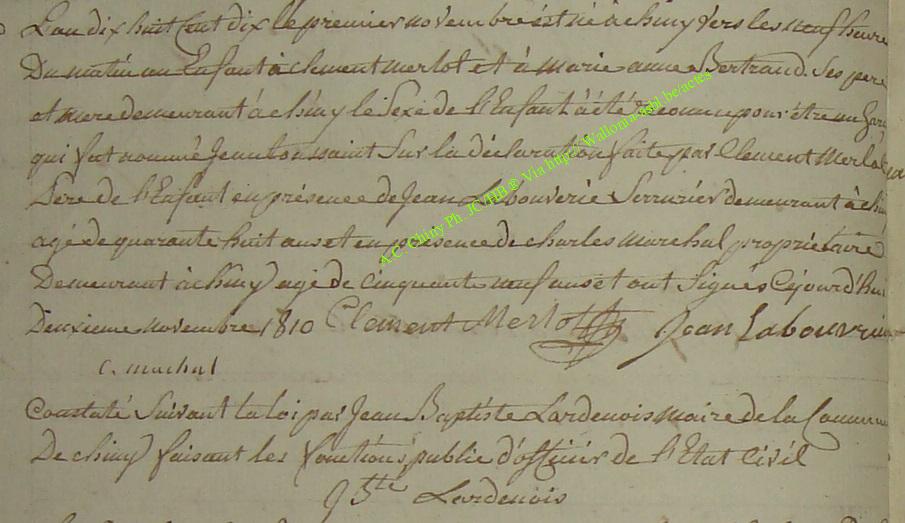 L'an dix huit Cent dix le premier novembre est né à chiny vers les neuf heure
Du matin un Enfant à clement merlot et à marie anne Bertrand. Ses pere
et mere demeurant à chiny le Sexe de l'Enfant à été reconnu pour être un
qui fut nommé Jean toussaint Sur la déclaration faite par Clement Merlot
Père de l'Enfant en présence de Jean Labouverie Serrurier demeurant à
agé de quarante huit ans et en présence de charles marchal propriétaire
Demeurant à chiny agé de cinquante neuf ans et ont Signés Cejourd'hui
Deuxieme novembre 1810 Clement Merlot Jean Labouverie
c. marchal
Constaté Suivant la loi par Jean Baptiste Lardenois maire de la Commune
De chiny faisant les fonctions public d'officier de l'Etat Civil
Lardenois
A.C. Chiny Ph. JCVHB © Via http:// Wallonia-asbl.be/actes